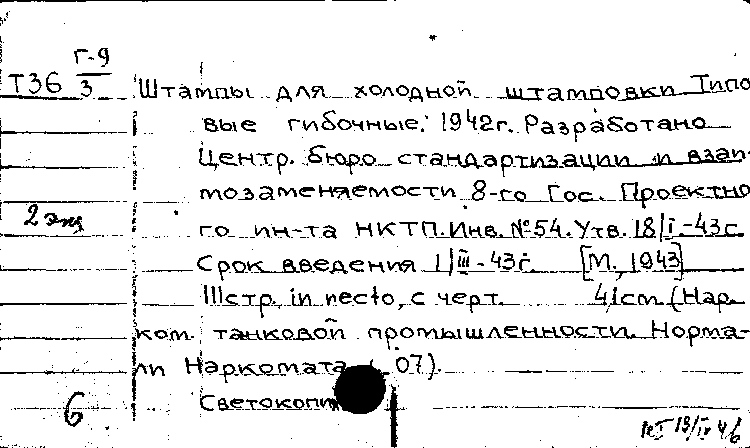 Т36 Г-9/3 Штампы для холодной штамповки Типо
вые гибочные. 1942г. Разработано
Центр. бюро стандартизации и взаи-
мозаменяемости 8-го Гос. Проектно
2 экз го ин-та НКТП. Инв. №54. Утв. 18/I-43г.
Срок введения 1/III-43г. [М., 1943]
111стр. in recto, с черт. 41см. (Нар.
ком. танковой промышленности. Норма-
ли Наркомата ( 07).
6 Светокопия